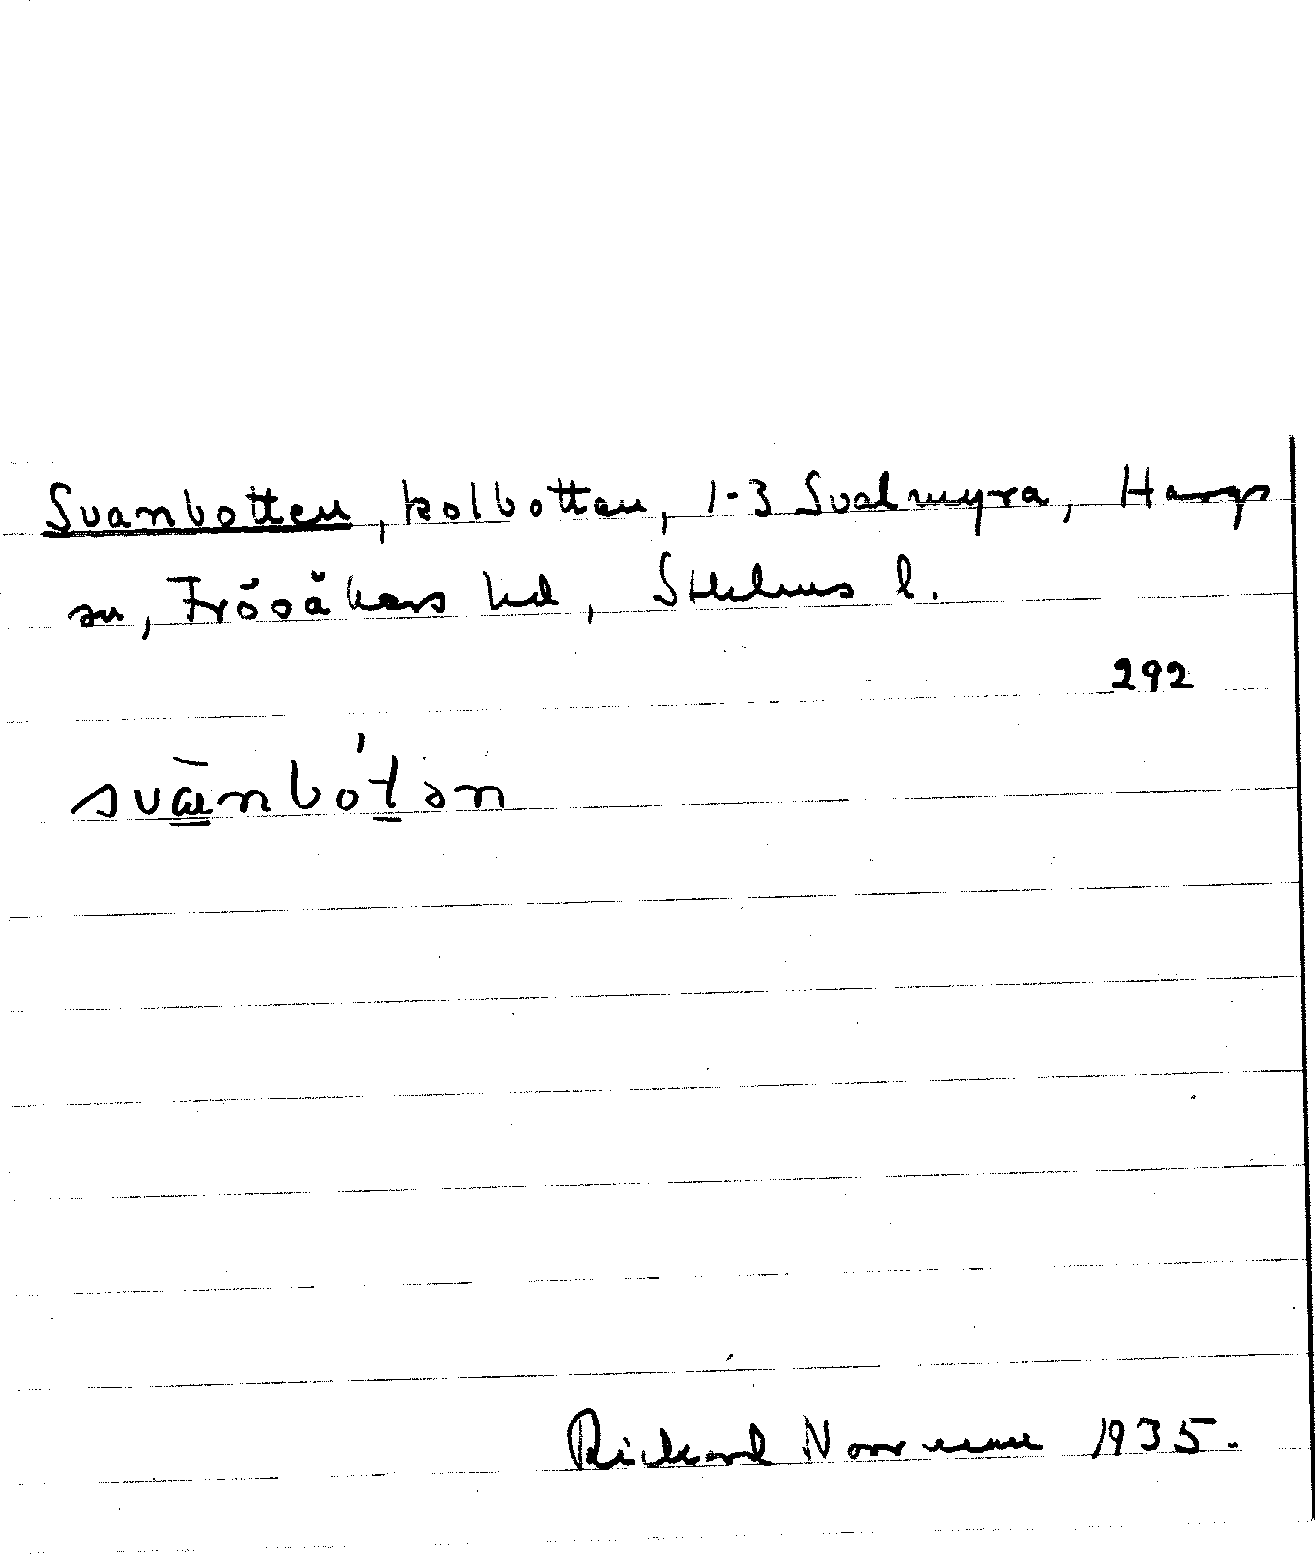 Svanbotten, kolbotten, 1-3 Svalmyra, Hargs
sn, Frösåkers hd, Sthlms l.
292
svànbót̲ən
Rickard Norrman 1935.